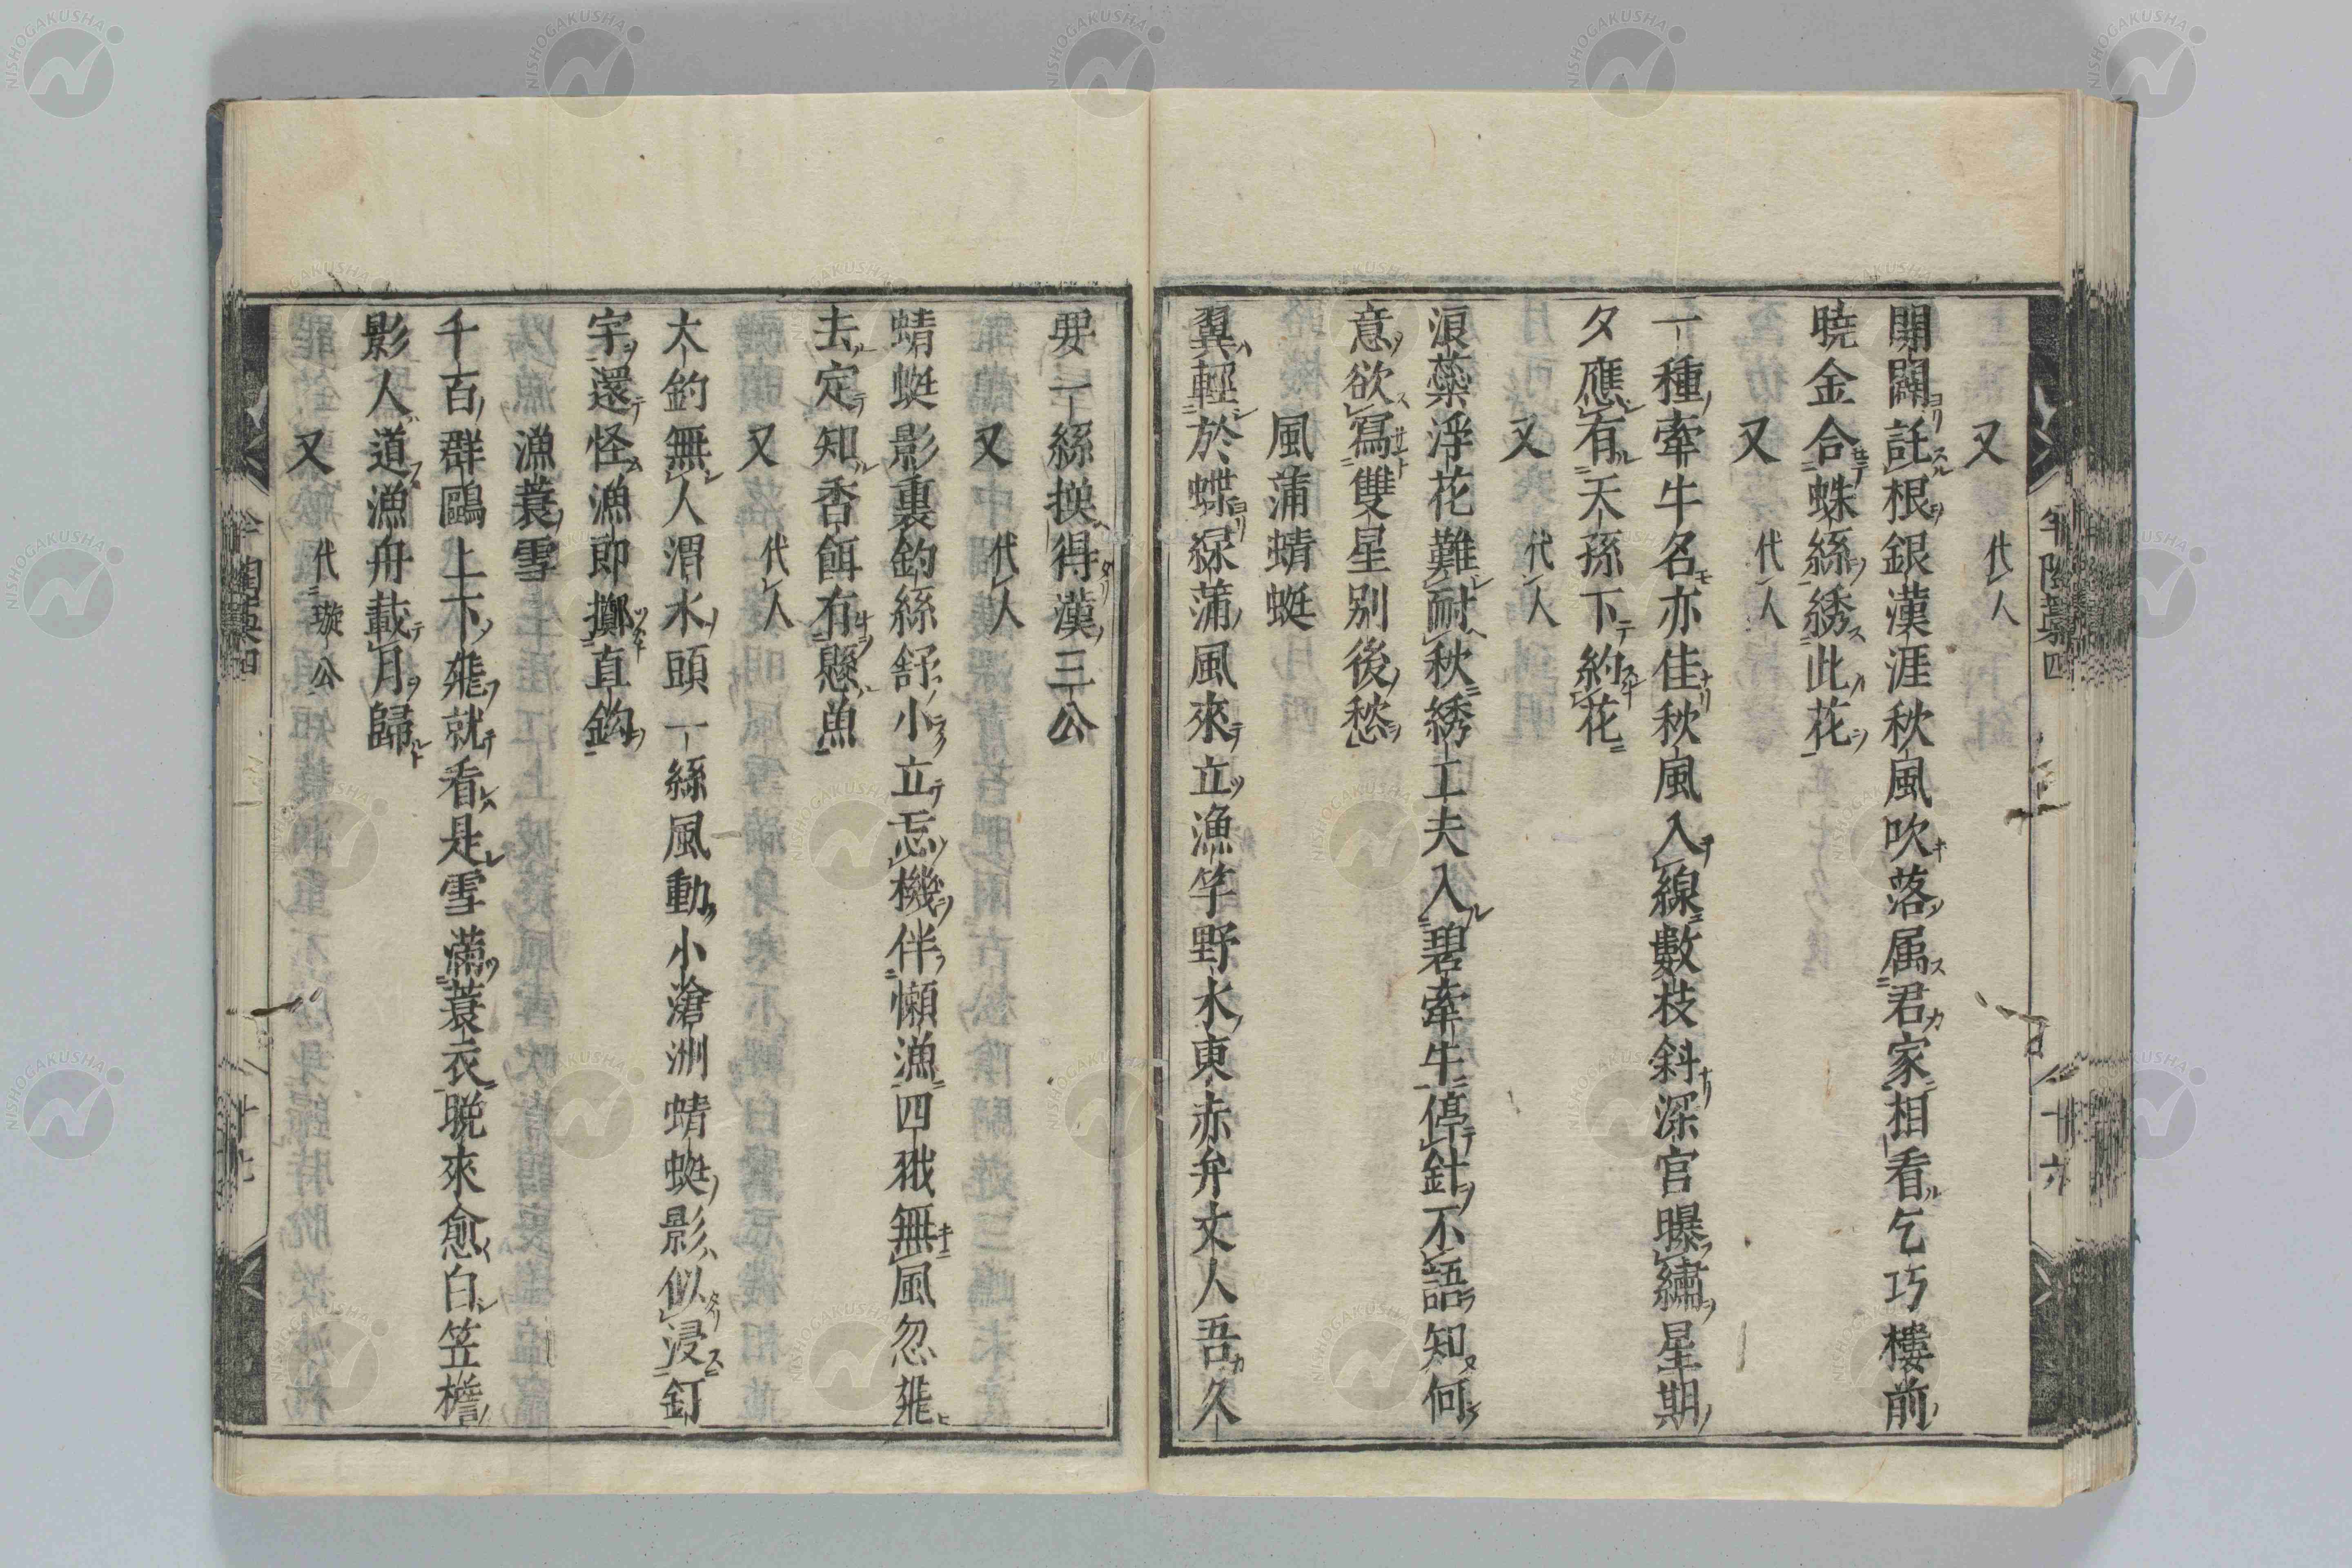 又 代人
開闢託根銀漢涯秋風吹落属君家相看乞巧樓前
曉金合蛛絲綉此花
又 代人
一種牽牛名亦佳秋風入線數枝斜深宮曝繡星期
夕應有天孫下約花
又 代人
浪蘂浮花難耐秋綉工夫入碧牽牛停針不語知何
意欲寫雙星別後愁
風蒲蜻蜓
翼輕於蝶綠蒲風來立漁竿野水東赤弁丈人吾久
要一絲換得漢三公
又 代人
蜻蜓影裏釣絲舒小立忘機伴懶漁四秡無風忽飛
去定知香餌有懸魚
又 代人
太釣無人渭水頭一絲風動小滄洲蜻蜓影似浸釘
字還怪漁郎擲直鈎
漁蓑雪
千百群鷗上下飛就看是雪滿蓑衣晩來愈白笠檐
影人道漁舟載月歸
又 代璇公
四
十六
四
十七